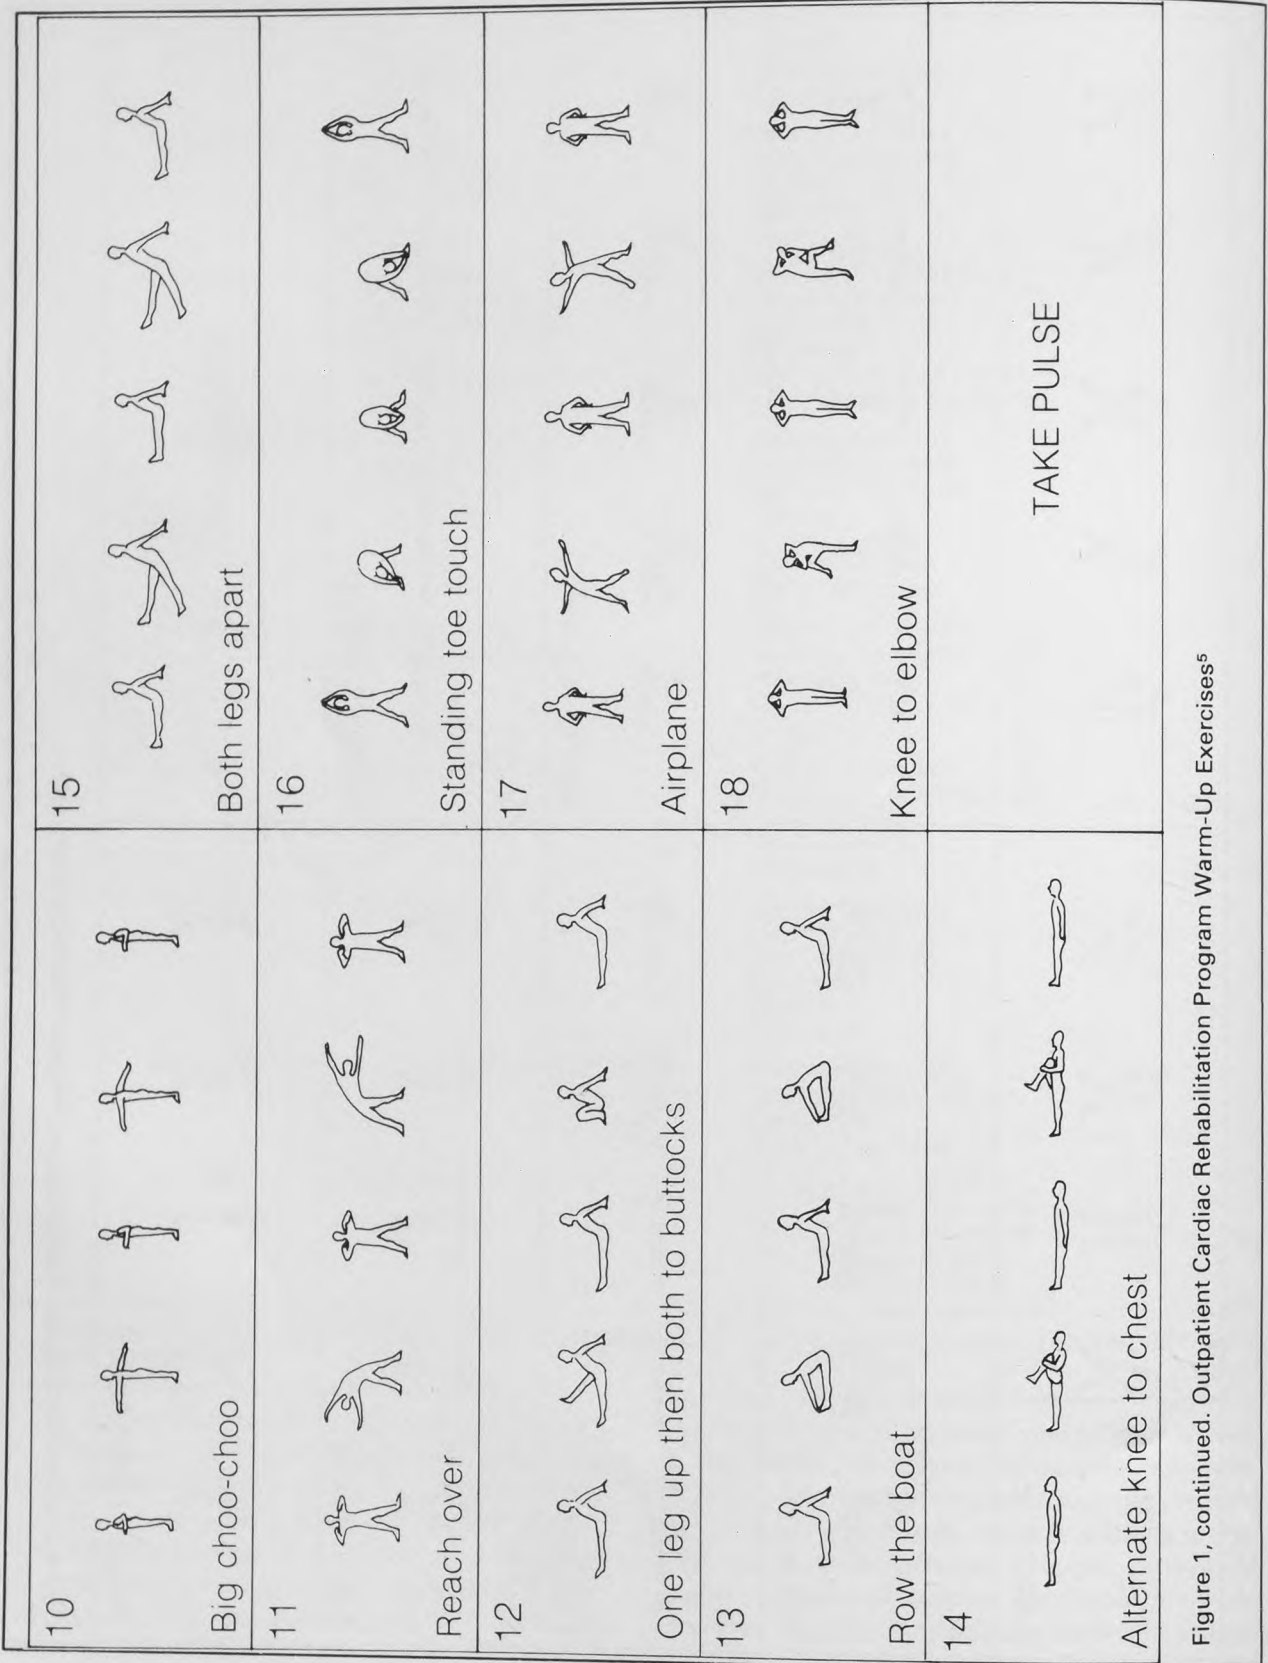 10
Big choo-choo
11
Reach over
12
One leg up then both to buttocks
13
Row the boat
14
Alternate knee to chest
15
Both legs apart
16
Standing toe touch
17
Airplane
18
Knee to elbow
TAKE PULSE
Figure 1, continued. Outpatient Cardiac Rehabilitation Program Warm-Up Exercises⁵